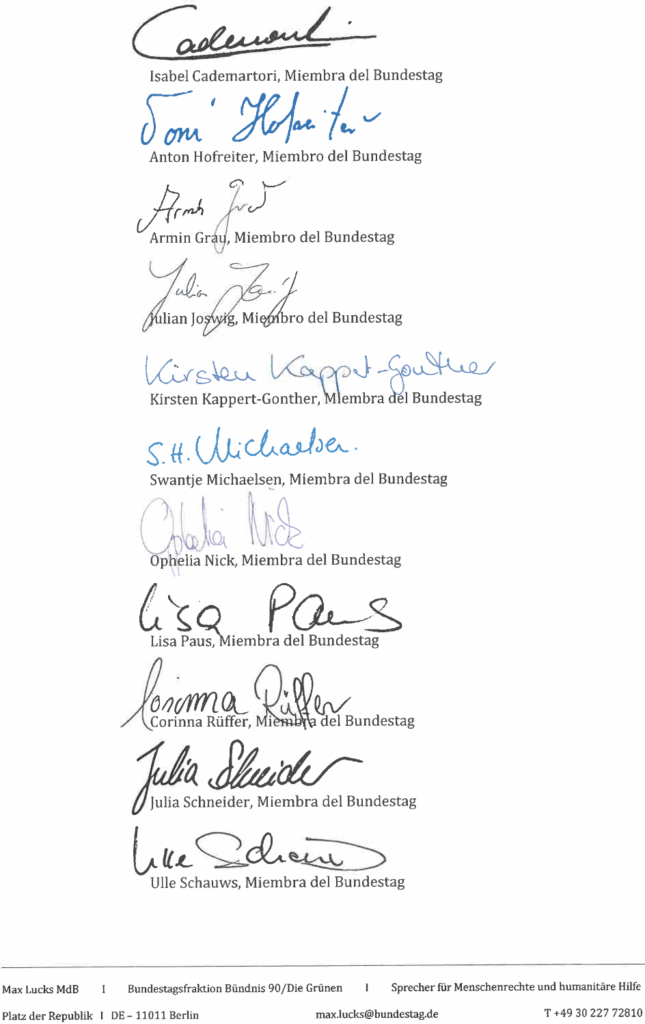 Cademartori
Isabel Cademartori, Miembra del Bundestag
Toni Hofreiter
Anton Hofreiter, Miembro del Bundestag
Armin Grau
Armin Grau, Miembro del Bundestag
Julian Joswig
Julian Joswig, Miembro del Bundestag
Kirsten Kappert-Gonther
Kirsten Kappert-Gonther, Miembra del Bundestag
S.H. Michaelsen
Swantje Michaelsen, Miembra del Bundestag
Ophelia Nick
Ophelia Nick, Miembra del Bundestag
Lisa Paus
Lisa Paus, Miembra del Bundestag
Corinna Rüffer
Corinna Rüffer, Miembra del Bundestag
Julia Schneider
Julia Schneider, Miembra del Bundestag
Ulle Schauws
Ulle Schauws, Miembra del Bundestag
Max Lucks MdB I Bundestagsfraktion Bündnis 90/Die Grünen I Sprecher für Menschenrechte und humanitäre Hilfe
Platz der Republik I DE – 11011 Berlin max.lucks@bundestag.de T +49 30 227 72810